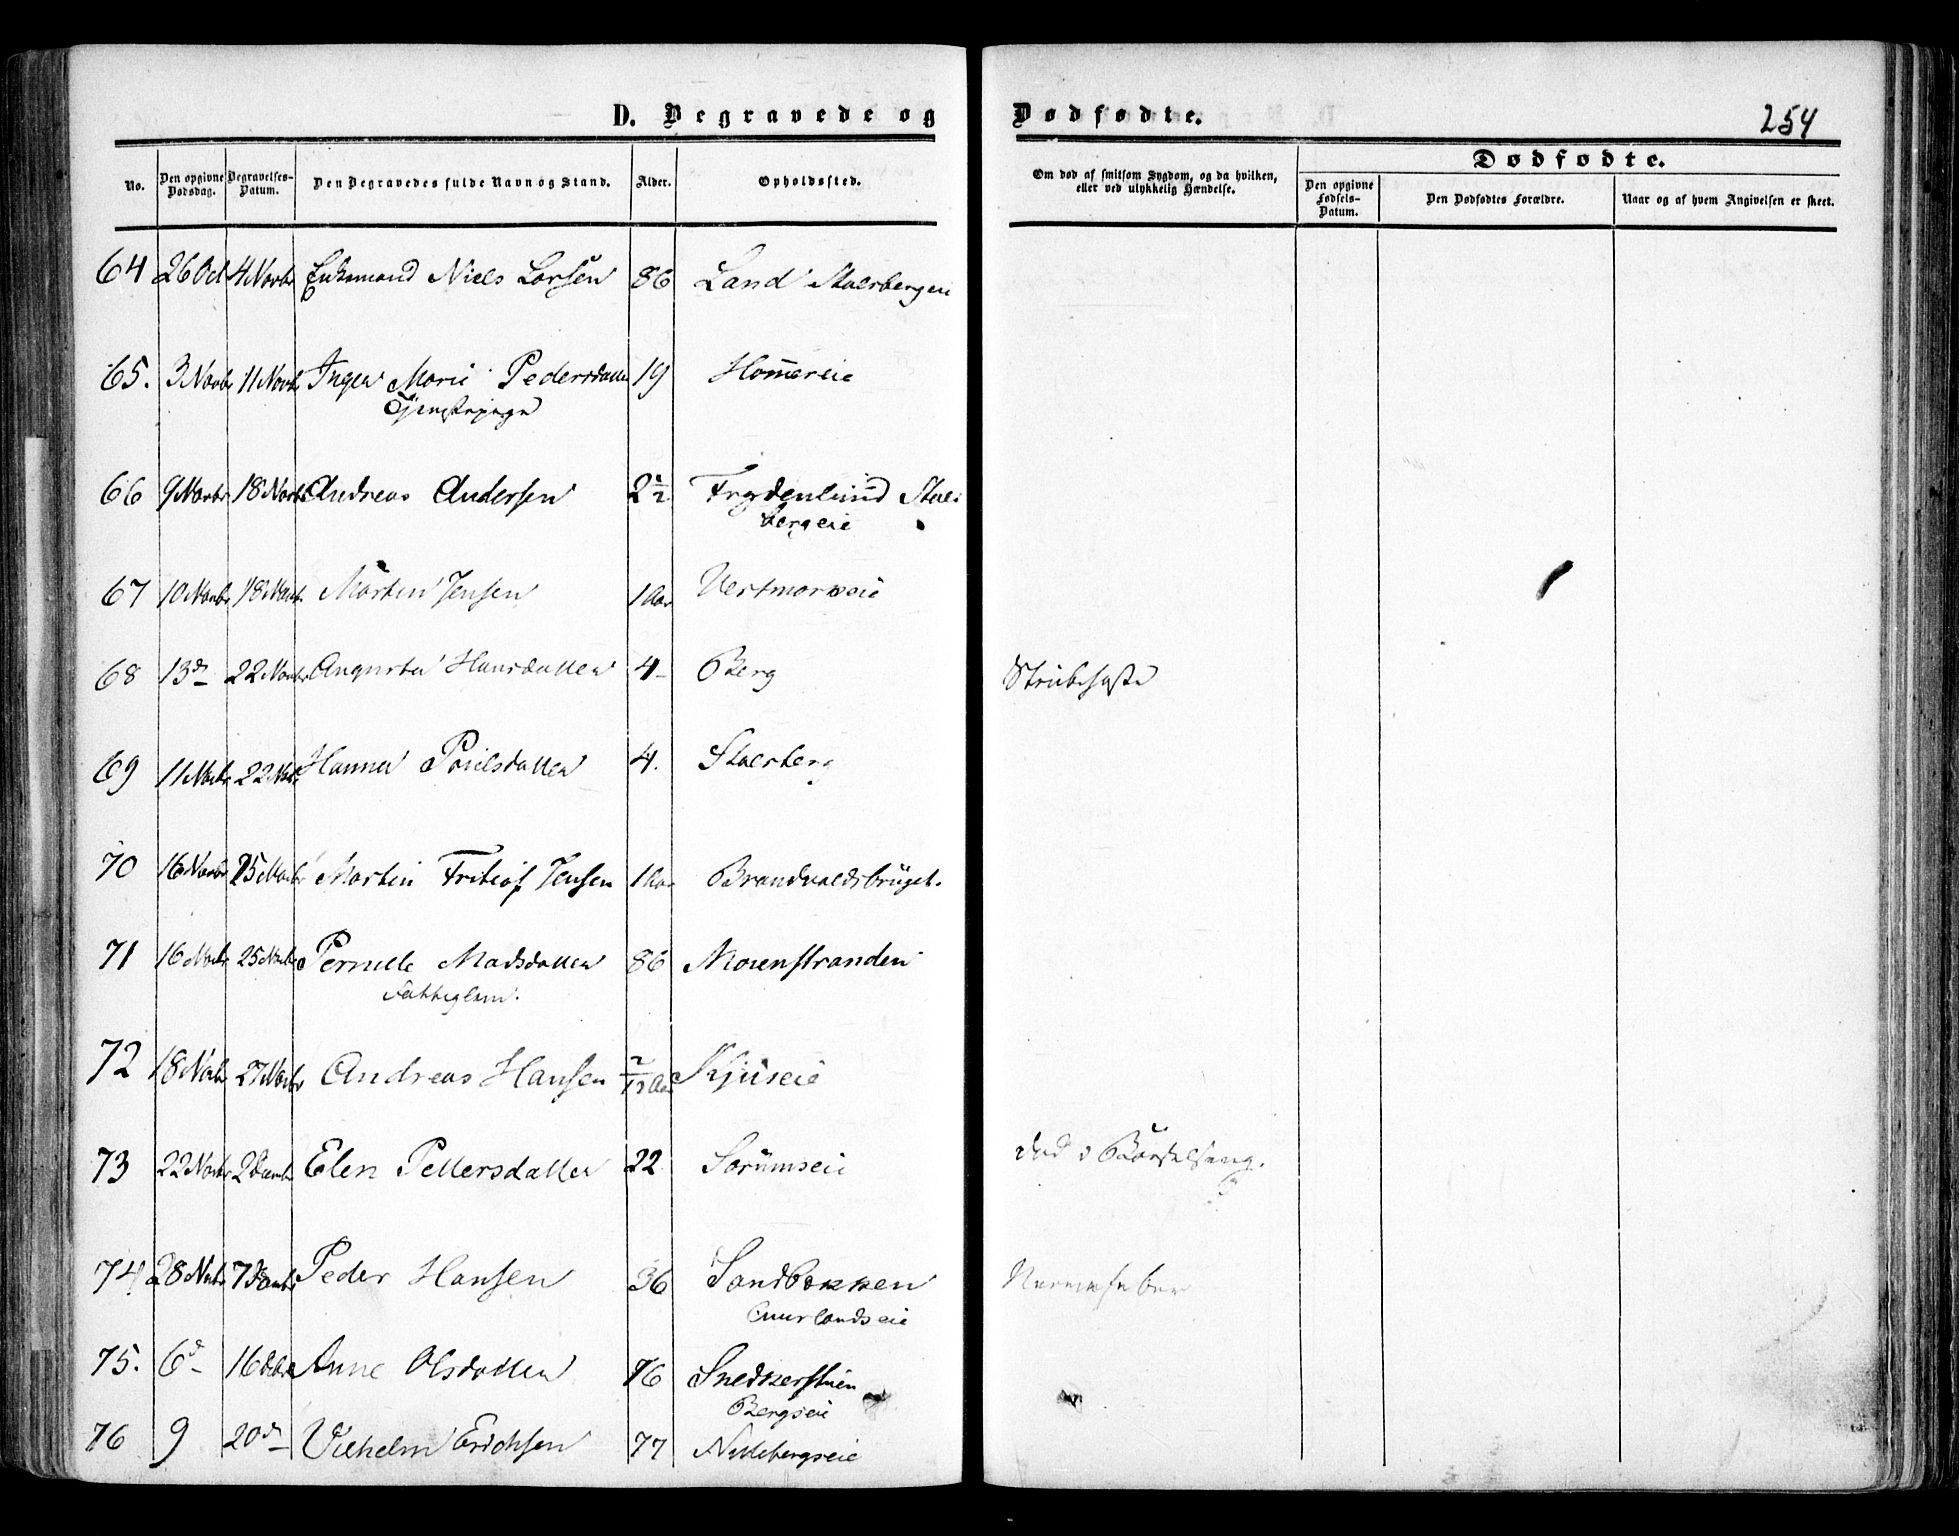 D. Begravede og Dødfødte. 254
No. Den opgivne Dødsdag. Begravelses-Datum. Den Begravedes fulde Navn og Stand. Alder. Opholdssted. Om død af smitsom Sygdom, og da hvilken, eller ved ulykkelig Hændelse. Dødfødte.
Den opgivne Fødsels-Datum. Den Dødfødtes Forældre. Naar og af hvem Angivelsen er skeet.
64 26 Oct 4 Novbr Enkemand Niels Larsen 86 Land Stuerbergeie
65. 3 Novbr 11 Novbr Inger Marie Pedersdatter 19 Hom̅ereie
Tjenstepige
66 9 Novbr 18 Novbr Andreas Andersen 2 1/2 Frydenlund
bergeie
67 10 Novbr 18 Novbr Morten Jensen 1 Aar
68 13 d 22 Novbr Augusta Hansdatter 4 Berg Strubehoste
69 11 Novbr 22 Novbr Hanna Poulsdatter 4. Stuerberg
70 16 Novbr 25 Novbr Martin Fritiof Jensen 1 Aar Brandvaldsbruget.
71 16 Novbr 25 Novbr Pernille Madsdatter 86 Moenstranden
Fattiglem.
72 18 Novbr 27 Novbr Andreas Hansen Aar Kjuseie
73 22 Novbr 2 Decembr Elen Pettersdatter 22 Sorumseie død i Barselseng.
74 28 Novbr 7 Decembr Peder Hansen 36 Sandbakken Nervefeber
75. 6 d 16 Decbr Anne Olsdatter 76 Snedkerstuen
Bergseie
76 9 20 d Vilhelm Erichsen 77 Nittebergseie